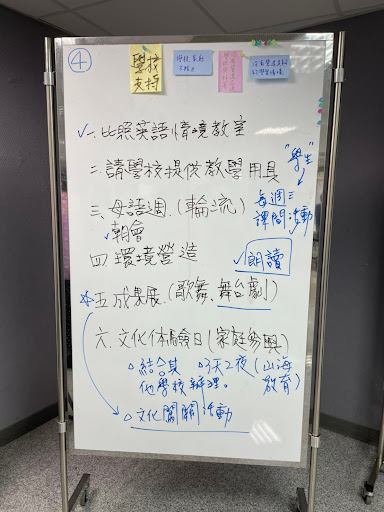 ④
學校
支持
✓一、比照英語情境教室
二、請學校提供教學用具
三、母語週.(輪流)
✓朝會
"學生"
每週三
課間活動
✓朗讀
四、環境營造
☆五、成果展.(歌舞、舞台劇)
六、文化体驗日(家庭參與)
。結合其
他學校辦理。
。3天2夜(山海
教育)
。文化闖關活動